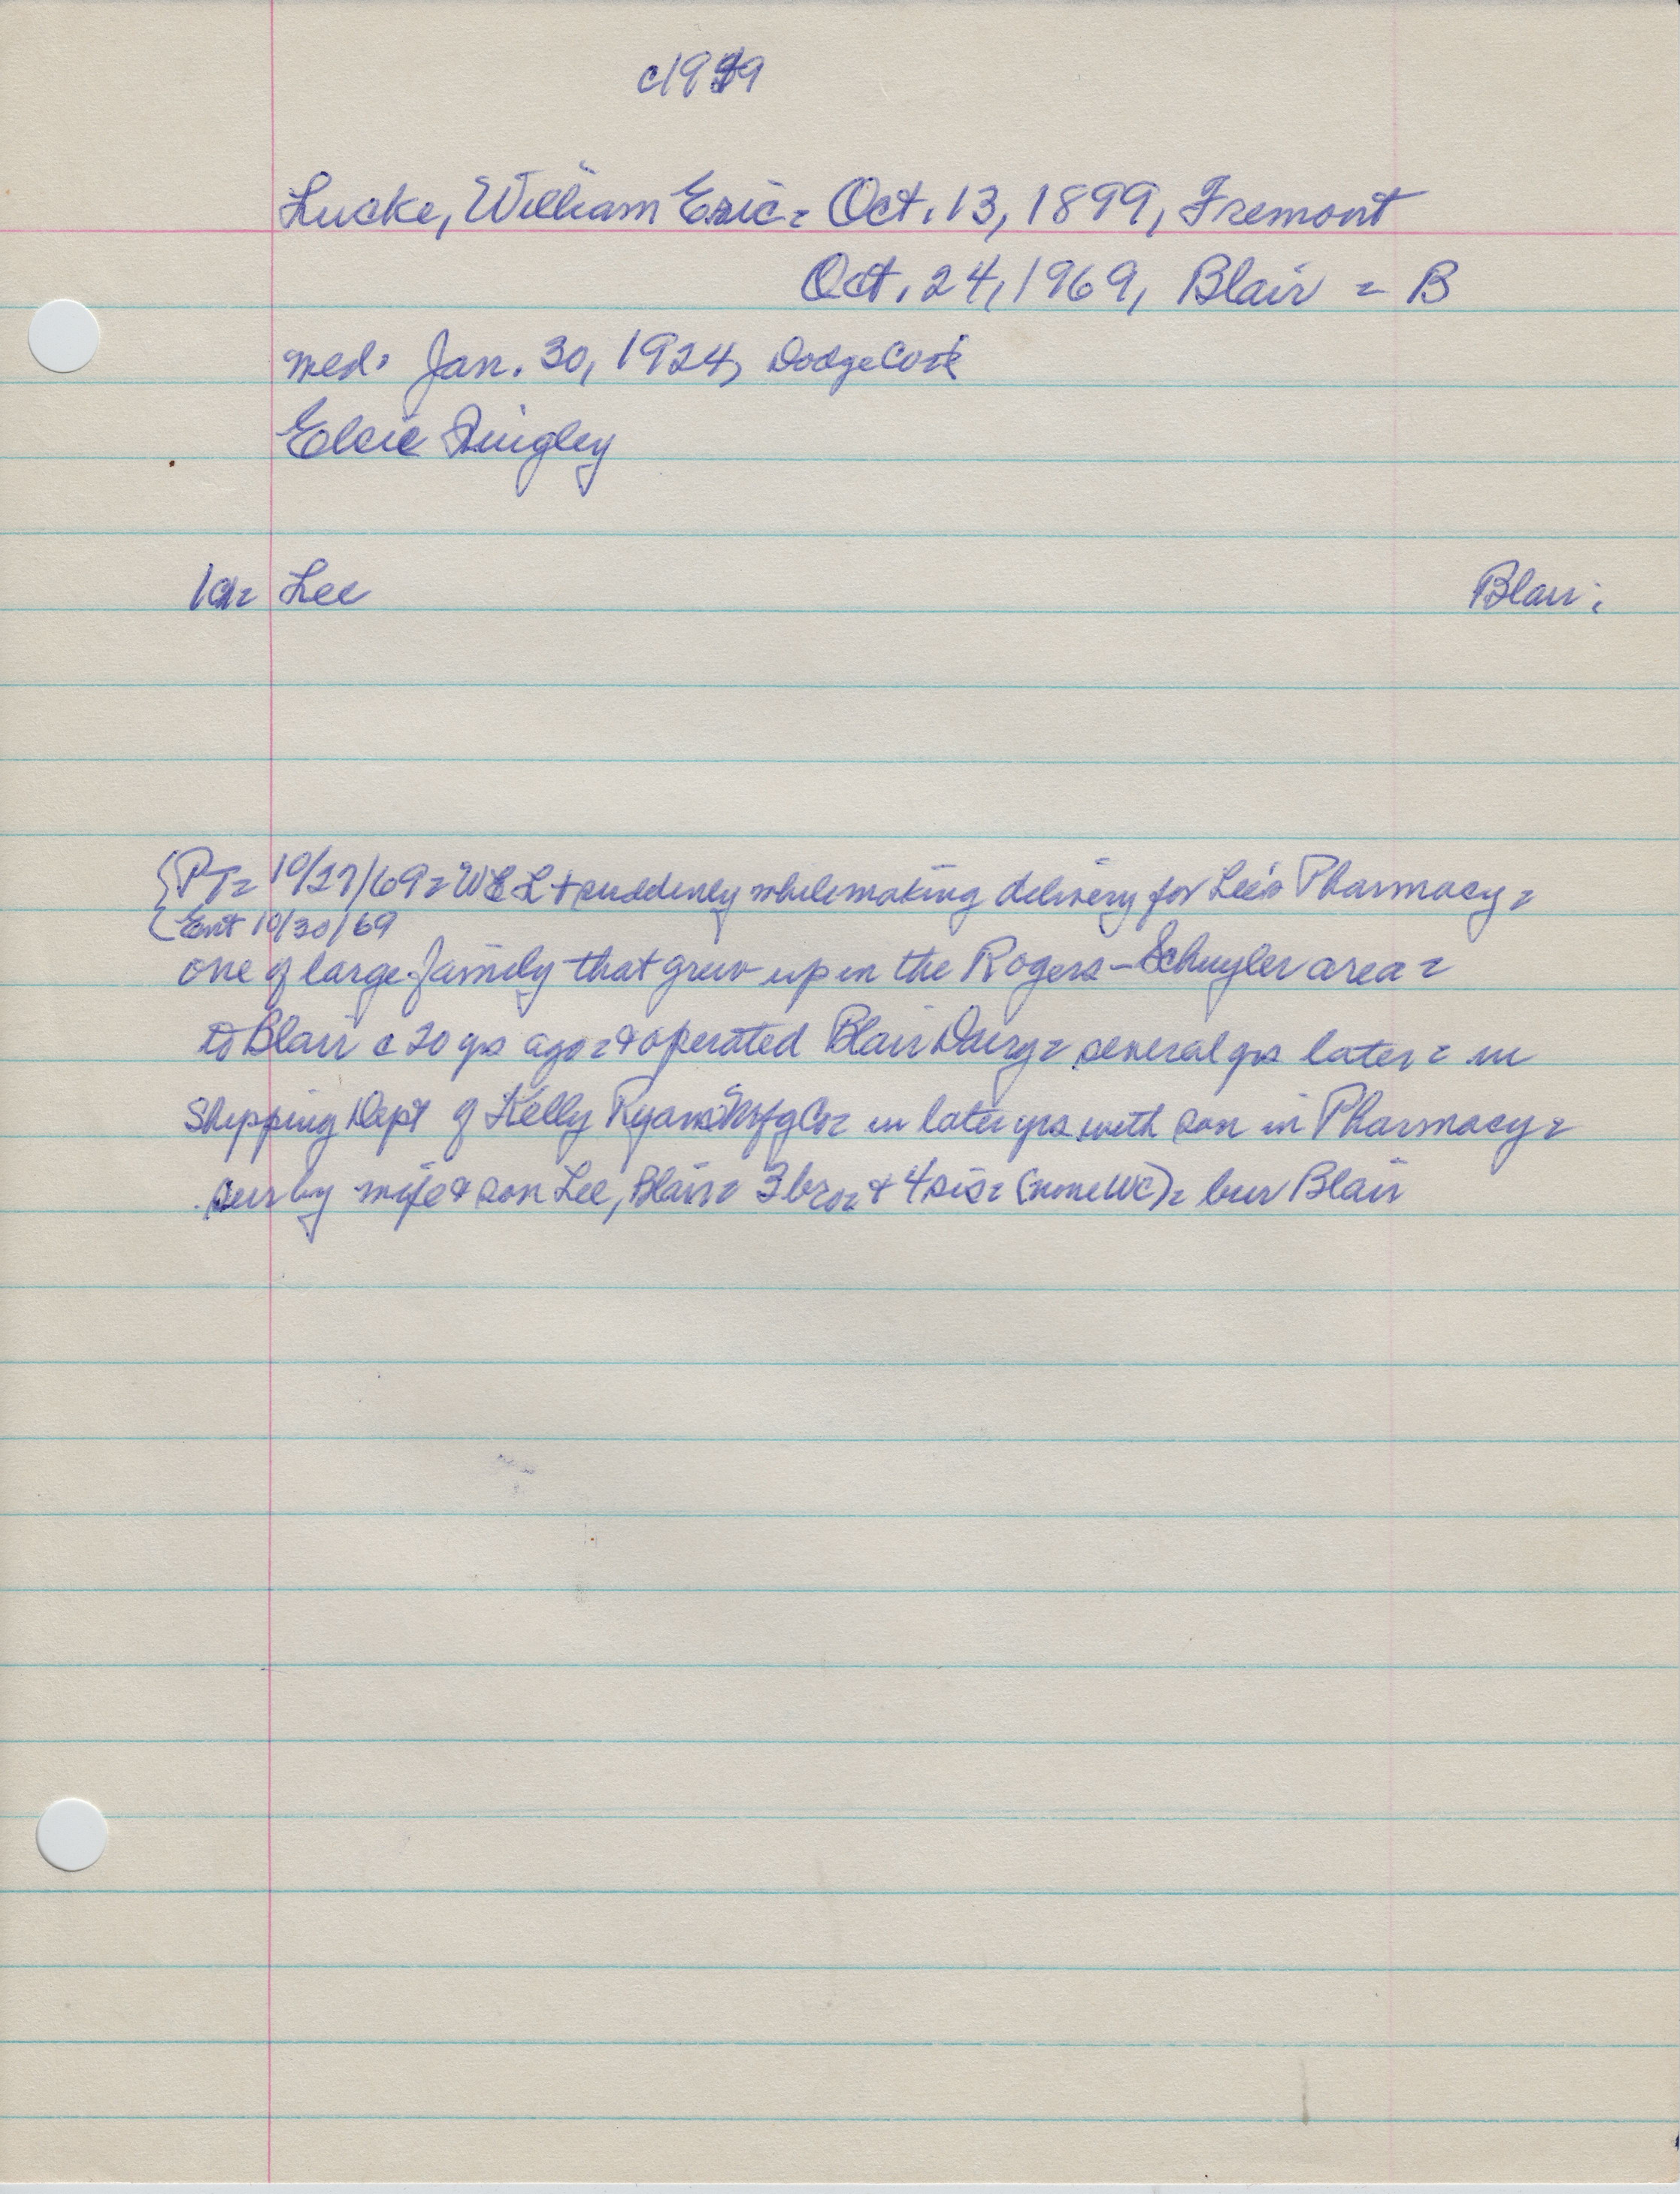 c1949
Lucke, William Eric = Oct. 13, 1899, Fremont
Oct. 24, 1969, Blair = B
med. Jan. 30, 1924, Dodge
Elsie
1a = Lee Blair.
{PT = 10/27/69 = WEL + suddenly while making delivery for Lee's Pharmacy =
{Ent 10/30/69
one of large family that grew up in the Rogers - Schuyler area =
to Blair c 20 ys ago = & operated Blair Dairy = several yrs later = in
Shipping Dept of Kelly Ryans Mfg Co = in later yrs with son in Pharmacy =
sur by wife & son Lee, Blair = 3 bro = & 4 sis = (none WC) = bur Blair